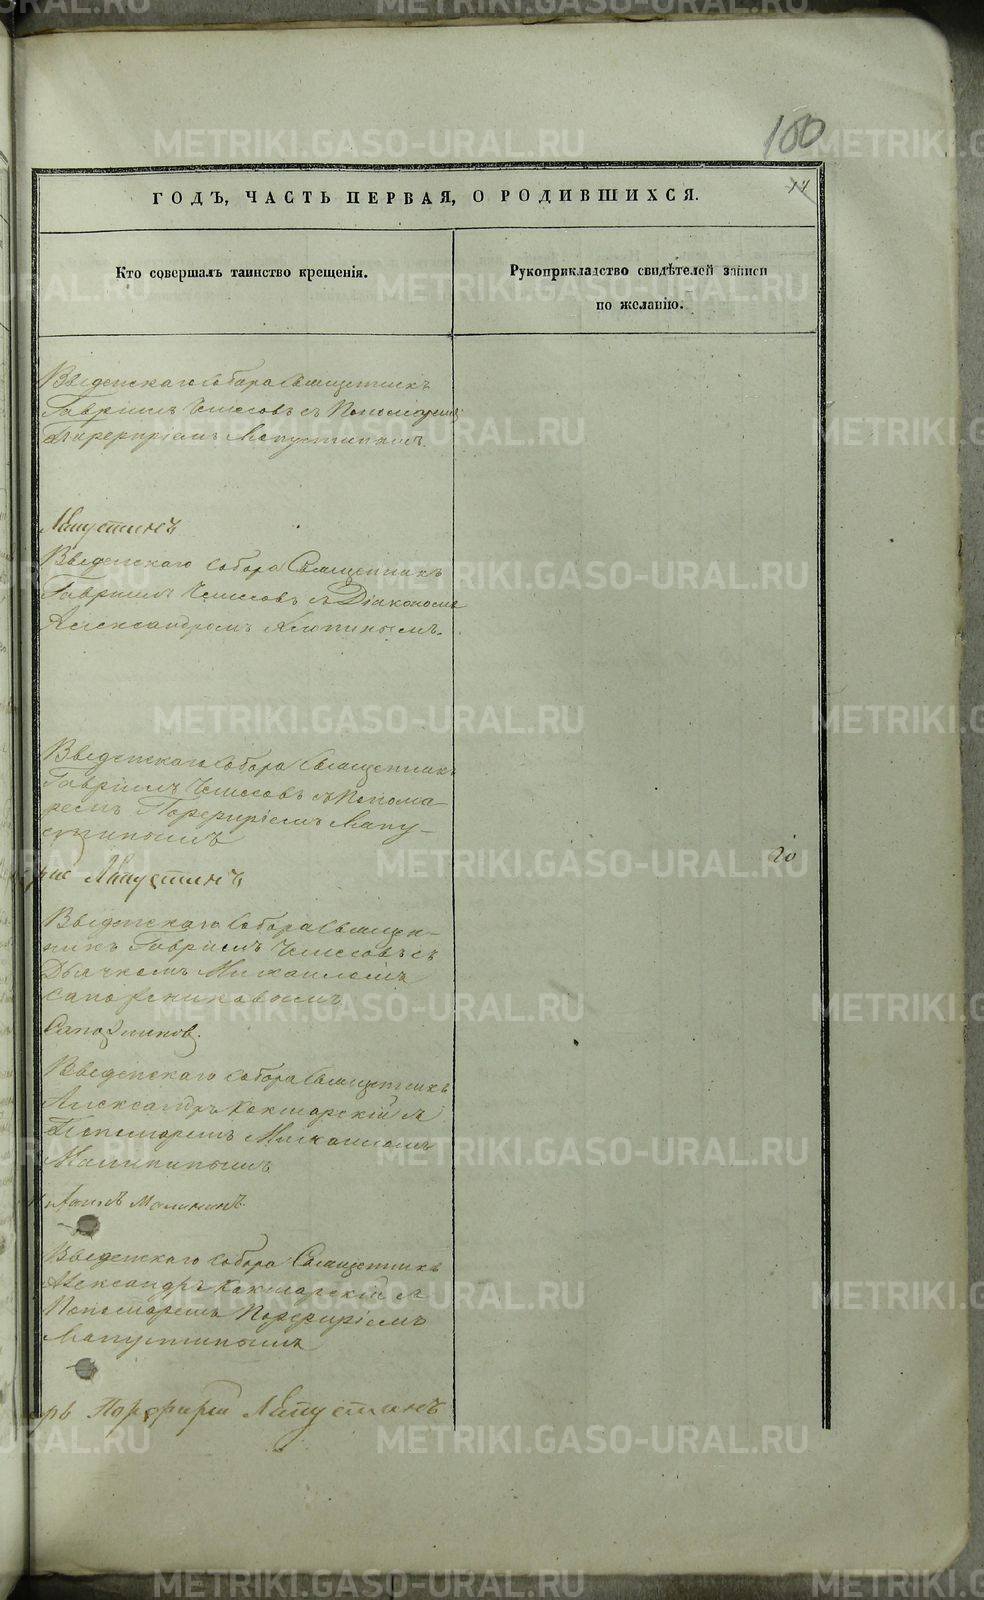 100
ГОДЪ, ЧАСТЬ ПЕРВАЯ, О РОДИВШИХСЯ.
Кто совершалъ таинство крещенія.
Рукоприкладство свидѣтелей записи
по желанію.
Введенскаго Собора Священникъ
Гавріилъ съ Пономаремъ
Порфиріемъ Лапустинымъ
Лапустинъ
Введенскаго Собора Священникъ
Гавріилъ съ Діакономъ
Александромъ
Введенскаго Собора Священникъ
Гавріилъ съ Понома-
ремъ Порфиріемъ Лапу-
стинымъ
Лапустинъ
Введенскаго Собора Священ-
никъ Гавріилъ съ
Дьячкомъ Михаиломъ
Сапожниковымъ
Сапожников.
Введенскаго Собора Священникъ
Александръ Кокшарскій съ
Пономаремъ Михаиломъ
Малининымъ
Малининъ
Введенскаго Собора Священникъ
Александръ Кокшарскій съ
Пономаремъ Порфиріемъ
Лапустинымъ
Порфирій Лапустинъ
METRIKI.GASO-URAL.RU